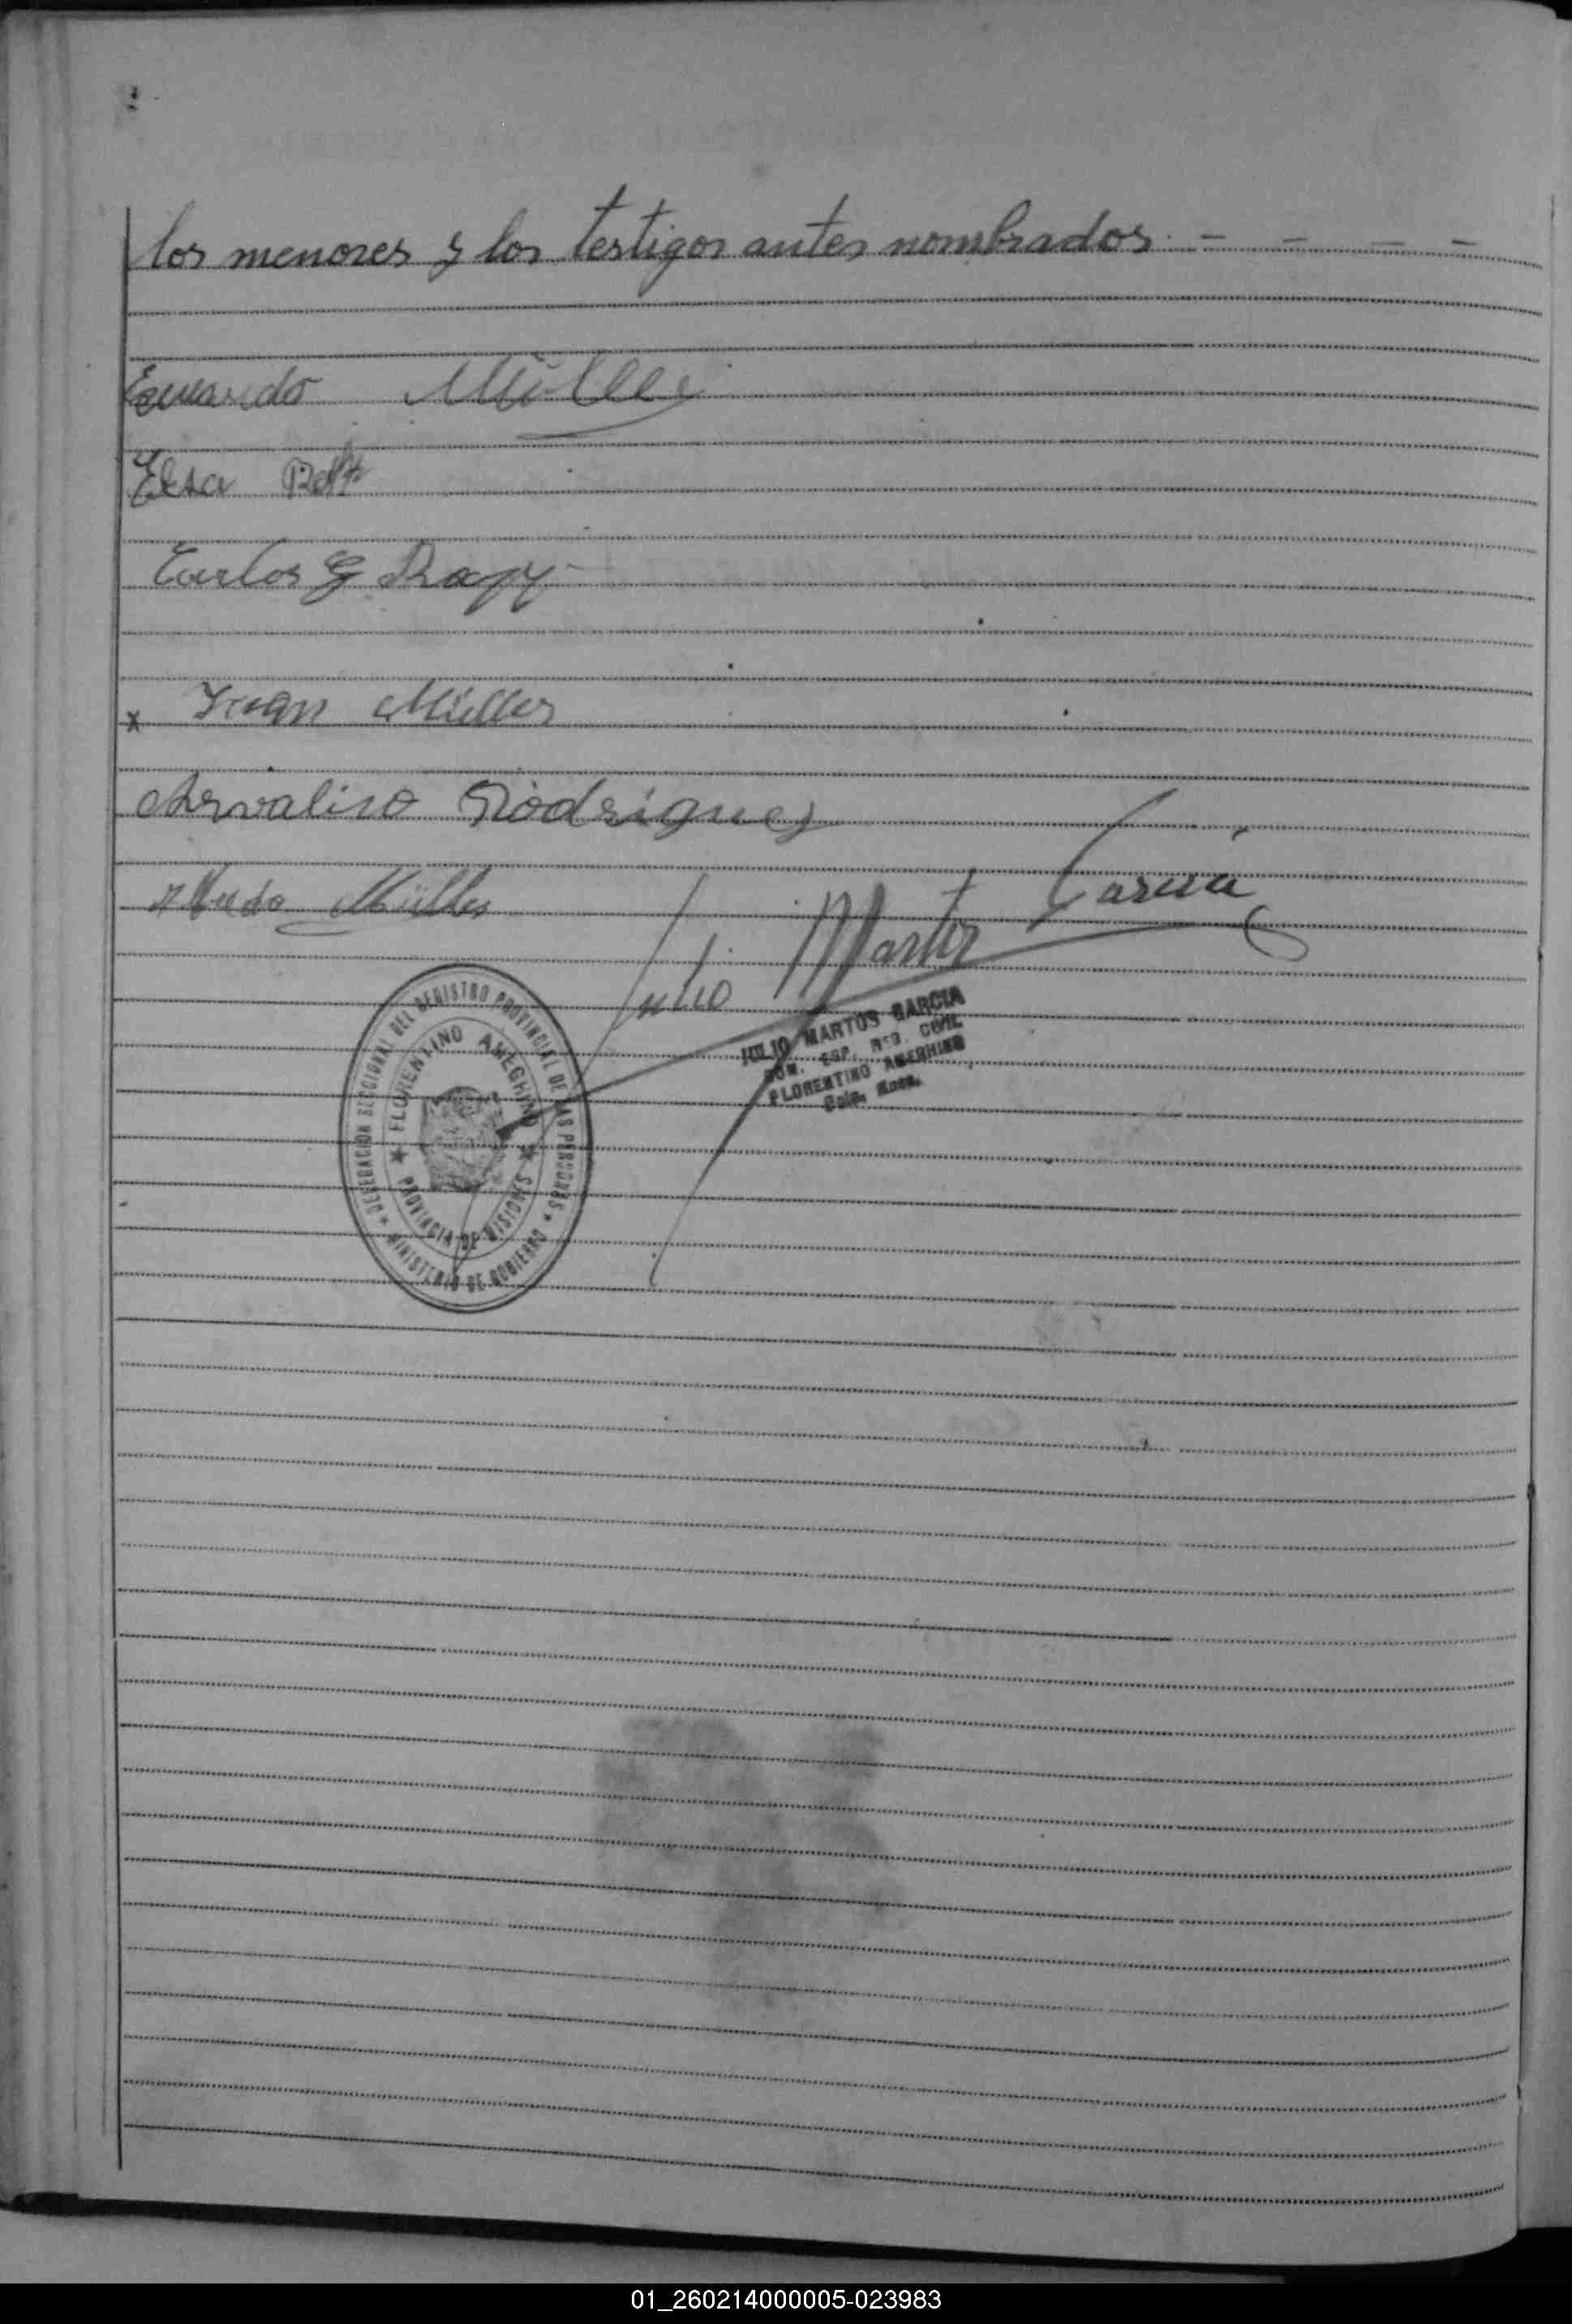 los menores y los testigos antes nombrados. - - - -
Eduardo Müller
Elsa
Carlos G
x Juan Müller
Arvalino Rodrigues
Müller
Julio Martos Garcia
JULIO MARTOS GARCIA
ESP. REG. CIVIL
FLORENTINO AMEGHINO
DELEGACION SECCIONAL DEL REGISTRO PROVINCIAL DE LAS PERSONAS * MINISTERIO DE GOBIERNO *
FLORENTINO AMEGHINO
PROVINCIA DE MISIONES
01_260214000005-023983